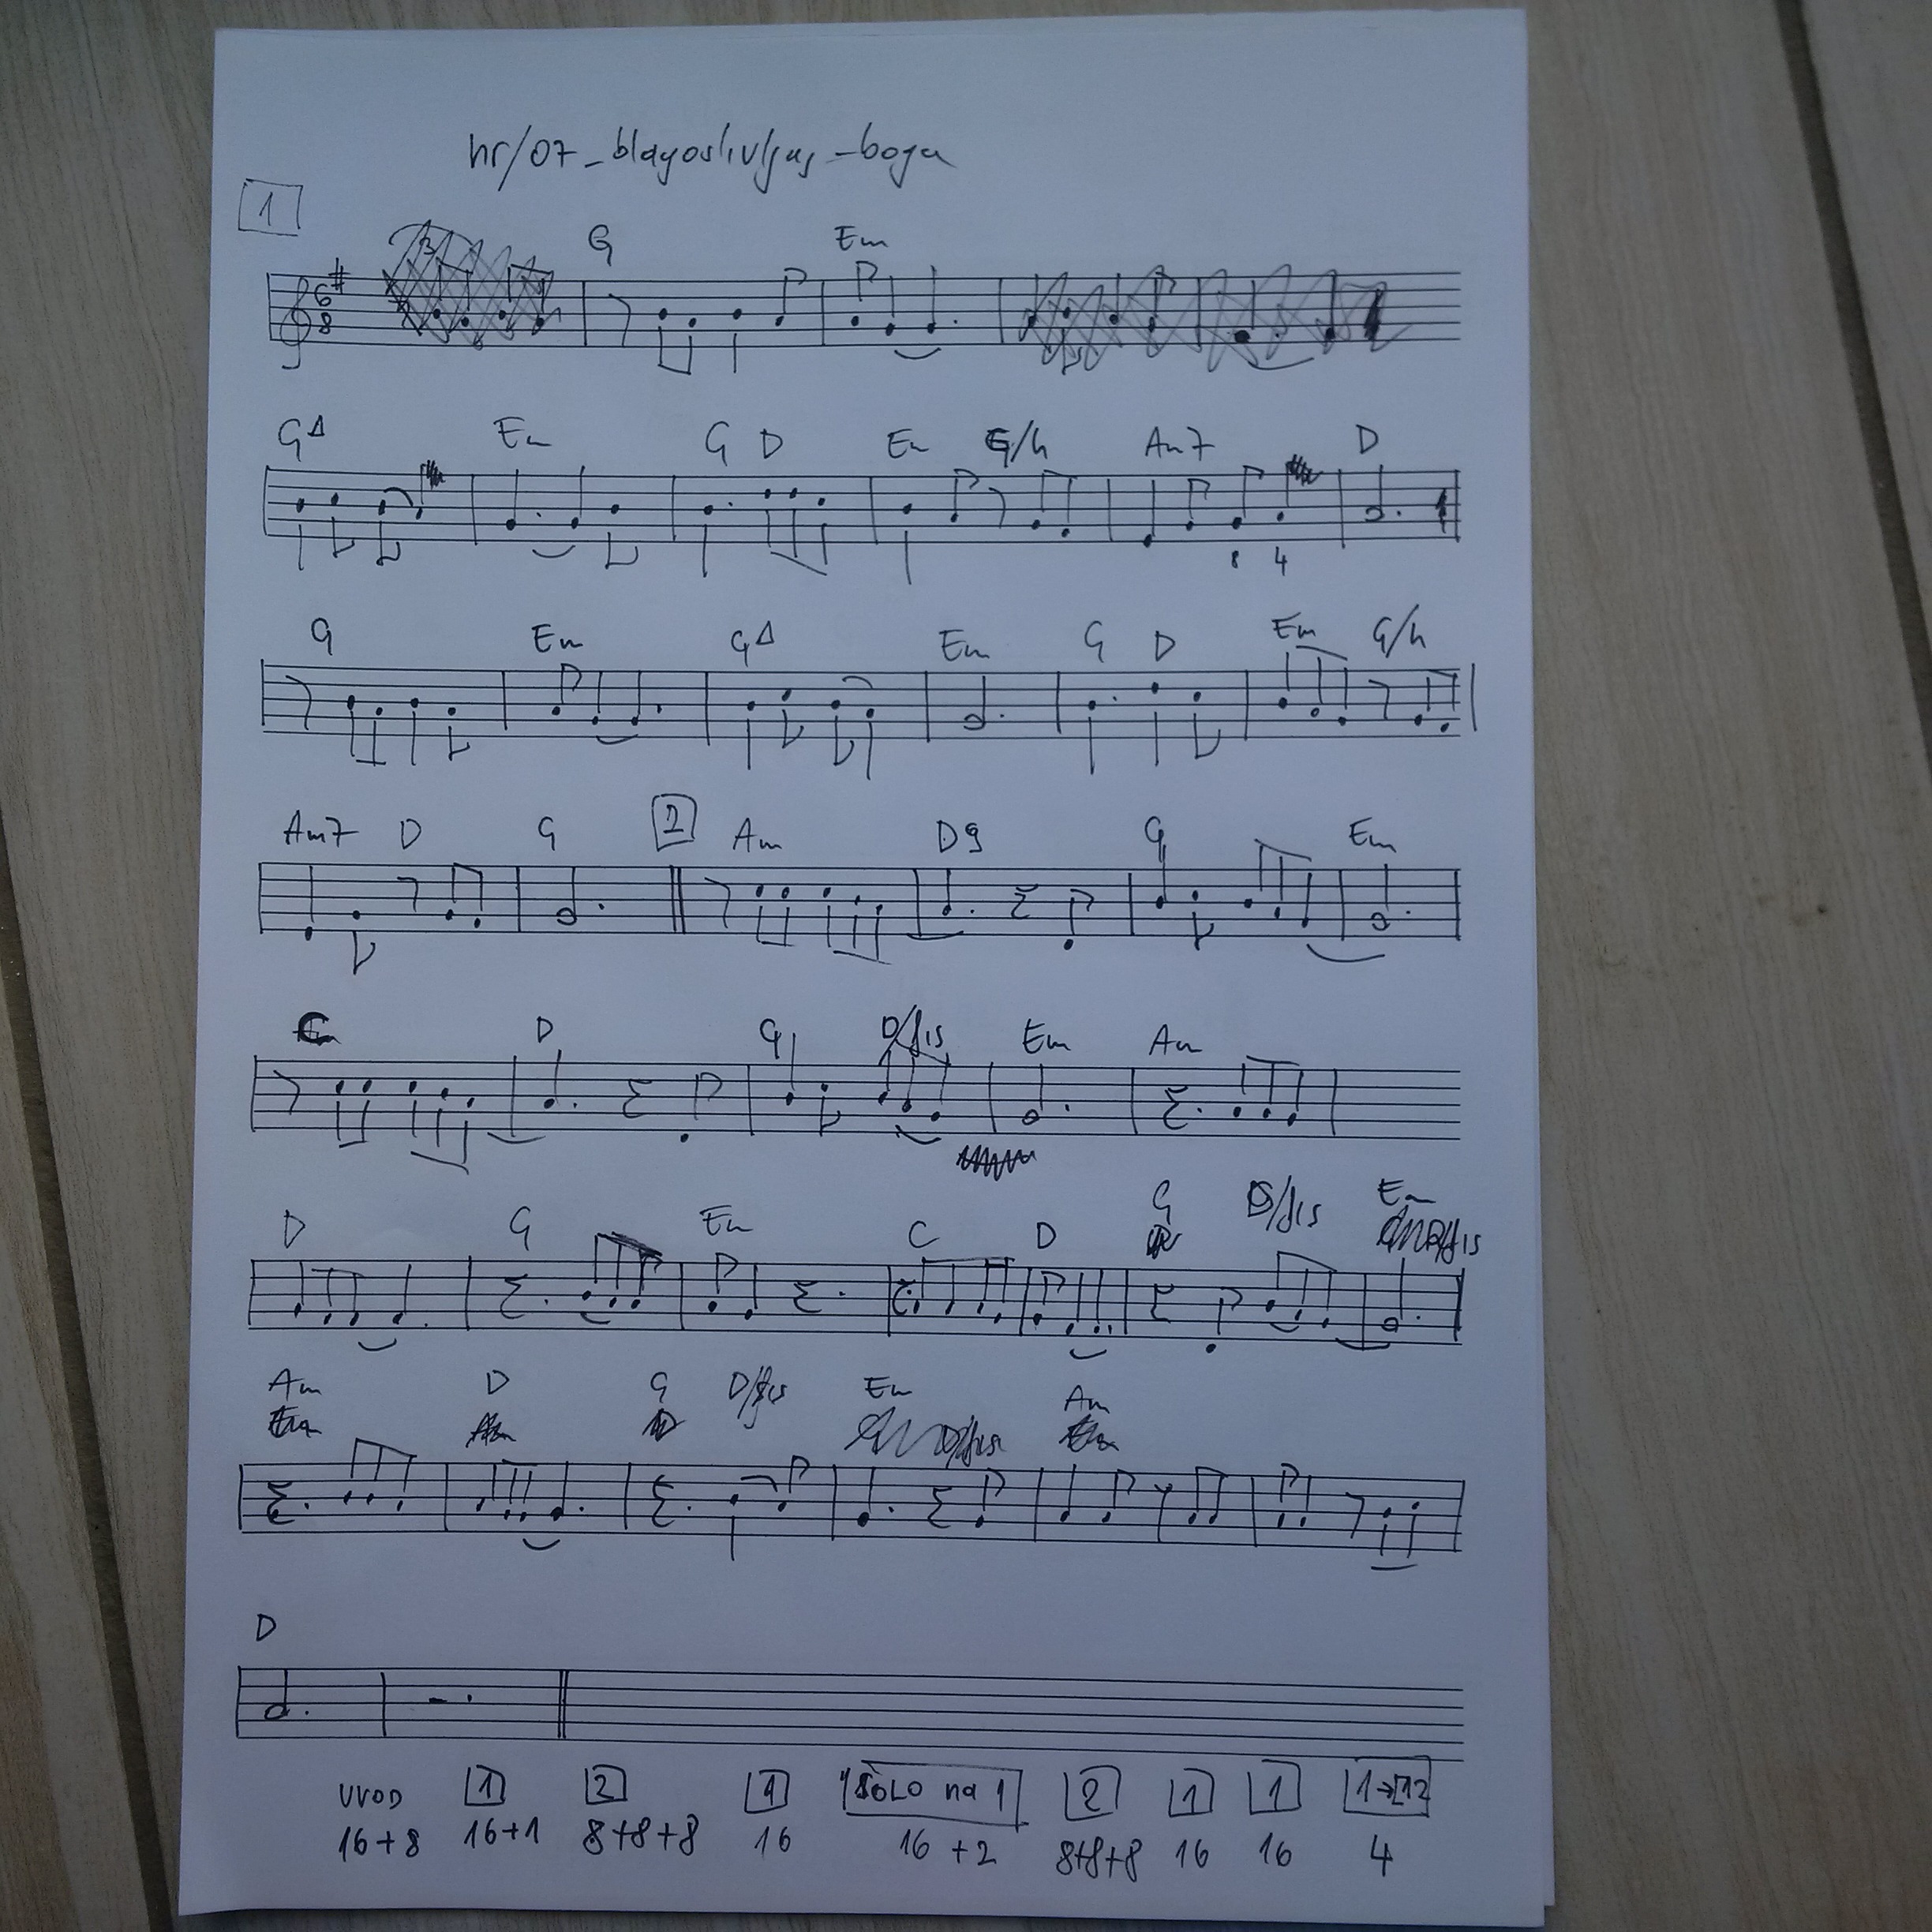 hr/07_blagoslivljaj_boga
1
6 8 G Em
G∆ Em G D Em G/h Am7 D
8 4
G Em G∆ Em G D Em G/h
Am7 D G 2 Am D9 G Em
C D G D/fis Em Am
D G Em C D G D/fis Em
Am D G D/fis Em Am
D
UVOD 1 2 1 SOLO na 1 2 1 1
16+8 16+1 8+8+8 16 16 +2 8+8+8 16 16 4